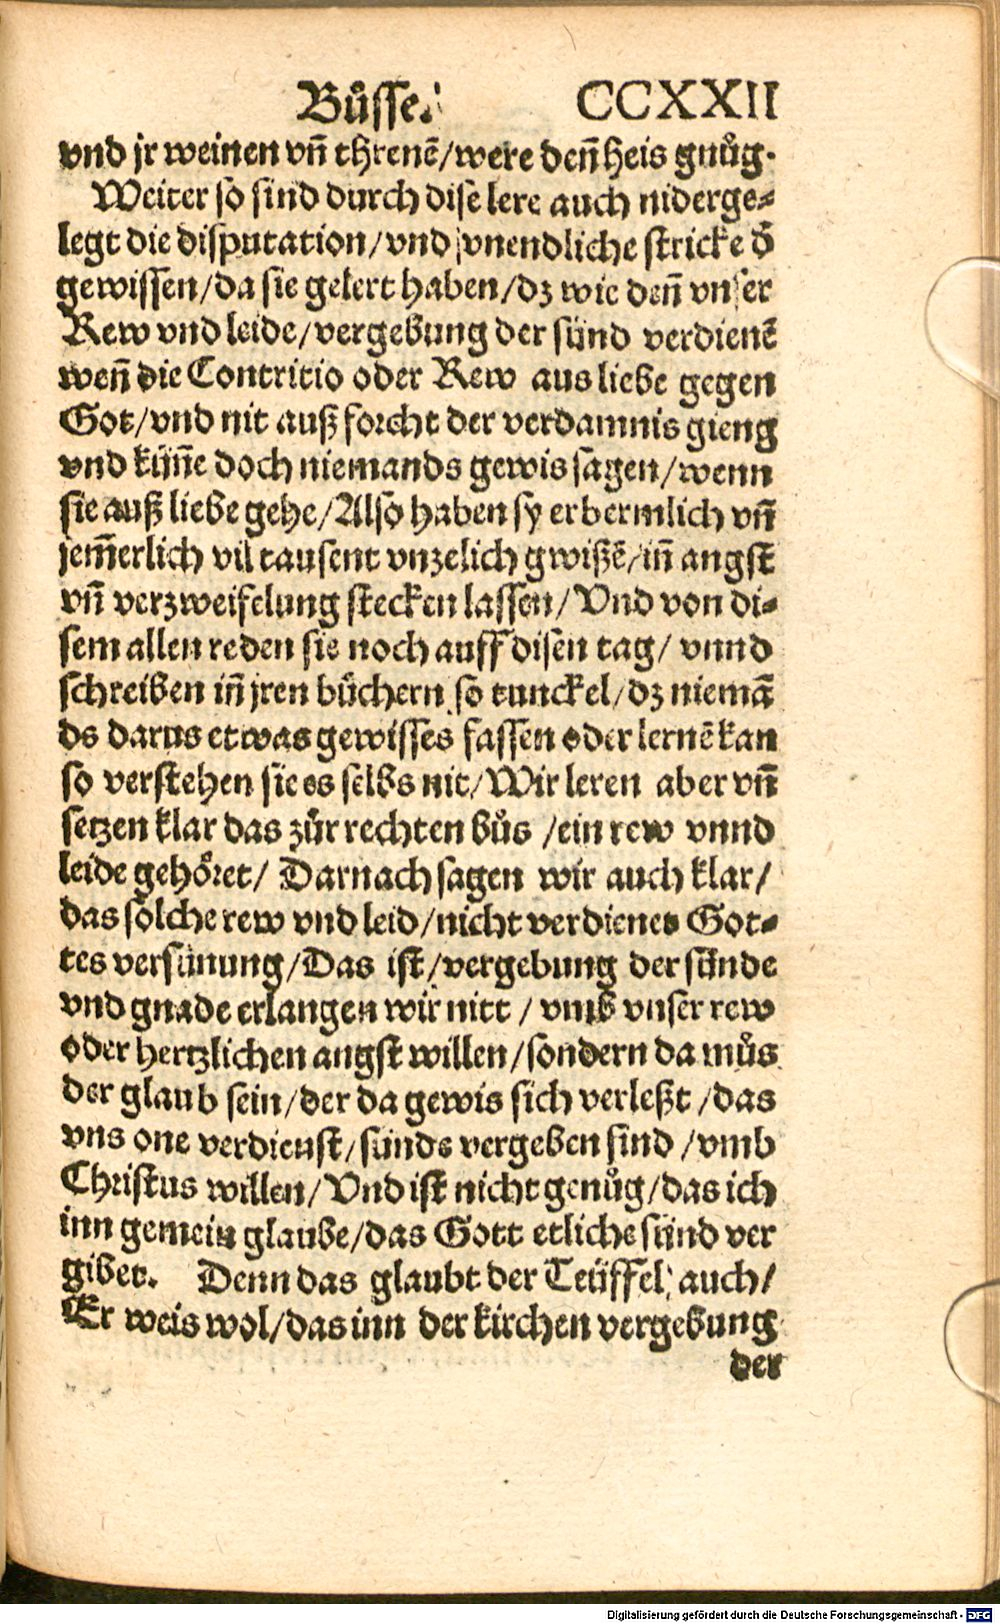 Bůsse. CCXXII
vnd jr weinen vñ threnē/were deñ heis gnůg.
Weiter so sind durch dise lere auch niderge-
legt die disputation/vnd vnendliche stricke d̄
gewissen/da sie gelert haben/dz wie deñ vnser
Rew vnd leide/vergebung der sünd verdienē
weñ die Contritio oder Rew aus liebe gegen
Got/vnd nit auß forcht der verdamnis gieng
vnd küñe doch niemands gewis sagen/wenn
sie auß liebe gehe/Also haben sy erbermlich vñ
jem̃erlich vil tausent vnzelich gwißē/iñ angst
vñ verzweifelung stecken lassen/Vnd von di-
sem allen reden sie noch auff disen tag/ vnnd
schreiben iñ jren bůchern so tunckel/dz niemā
ds darus etwas gewisses fassen oder lernē kan
so verstehen sie es selbs nit/Wir leren aber vñ
setzen klar das zůr rechten bůs /ein rew vnnd
leide gehöret/ Darnach sagen wir auch klar/
das solche rew vnd leid/nicht verdienen Got-
tes versünung/Das ist/vergebung der sünde
vnd gnade erlangen wir nitt / vmb vnser rew
oder hertzlichen angst willen/sondern da můs
der glaub sein/der da gewis sich verleßt /das
vns one verdienst/sünde vergeben sind /vmb
Christus willen/Vnd ist nicht genůg/das ich
inn gemein glaube/das Gott etliche sünd ver
gibet. Denn das glaubt der Teüffel auch/
Er weis wol/das inn der kirchen vergebung
der
Digitalisierung gefördert durch die Deutsche Forschungsgemeinschaft - DFG